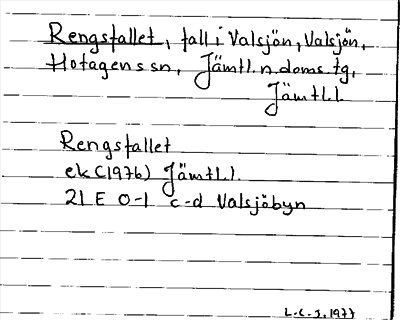 Rengsfallet, fall i Valsjön, Valsjön,
Hotagens sn, Jämtl. n. doms. tg,
Jämtl. l.
Rengsfallet
ek (1976) Jämtl. l.
21 E 0-1 c-d Valsjöbyn
L.C.J. 1977